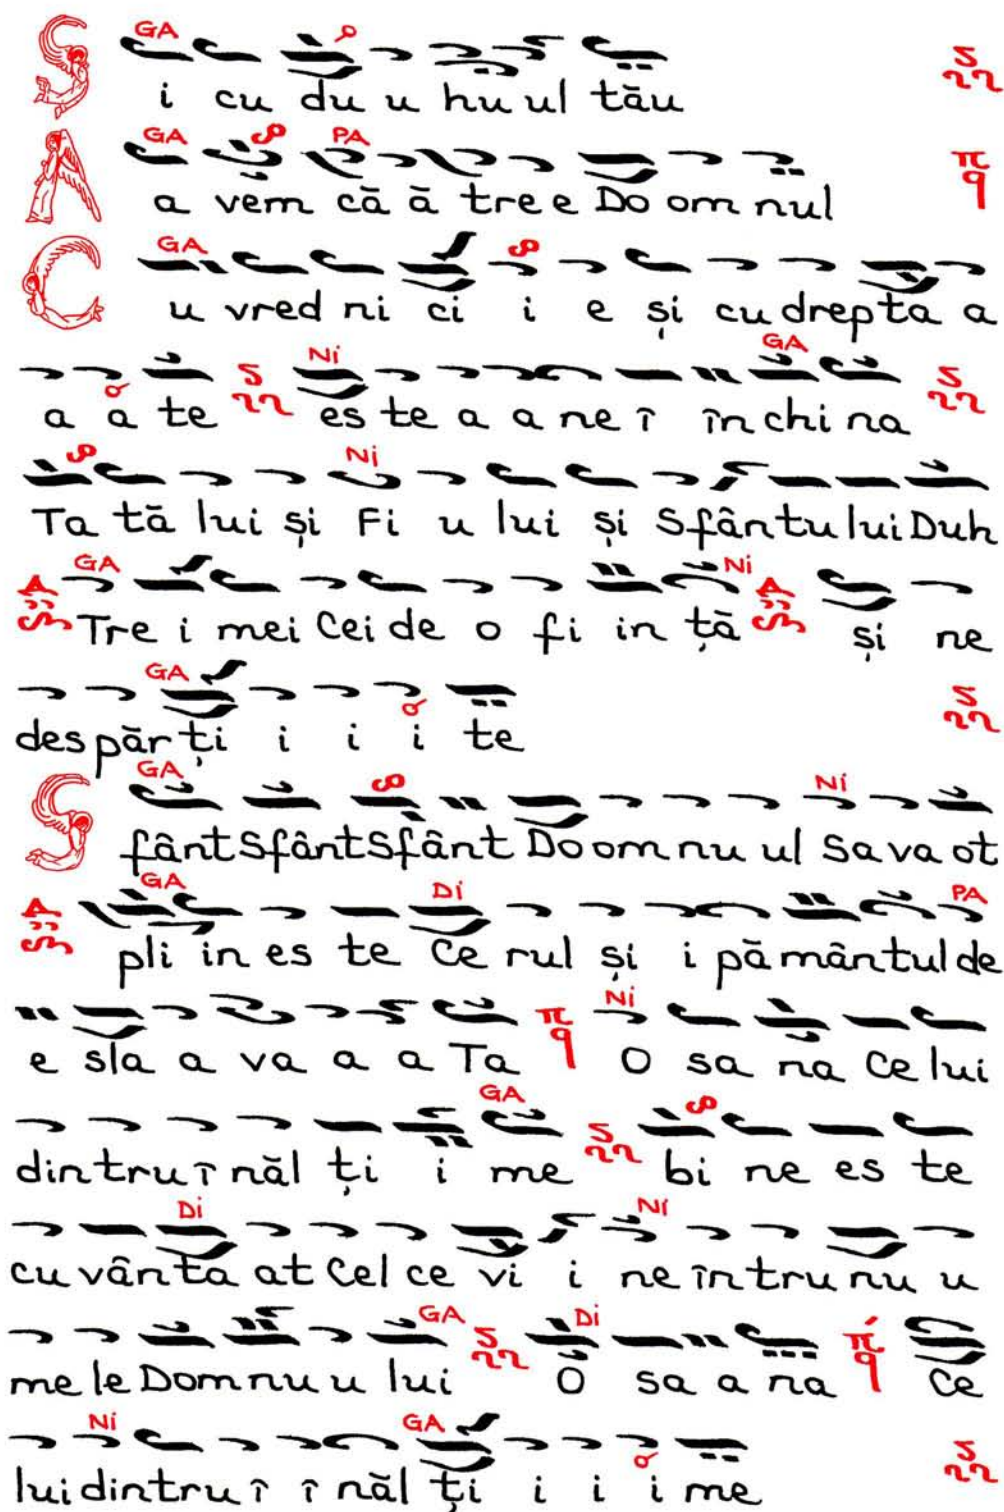 GA
S i cu du u hu ul tău
GA PA
A a vem că ă tre e Do om nul
GA
C u vred ni ci i e și cu drep ta a
Ni GA
a a te es te a a ne î în chi na
Ni
Ta tă lui și Fi u lui și Sfân tu lui Duh
GA Ni
Tre i mei Cei de o fi in ță și ne
GA
des păr ți i i i te
GA Ni
S fânt Sfânt Sfânt Do om nu ul Sa va ot
GA Di PA
pli in es te Ce rul și i pă mân tul de
Ni
e sla a va a a Ta O sa na Ce lui
GA
din tru î năl ți i me bi ne es te
Di Ni
cu vân ta at Cel ce vi i ne în tru nu u
GA Di
me le Dom nu u lui O sa a na Ce
Ni GA
lui din tru î î năl ți i i i me